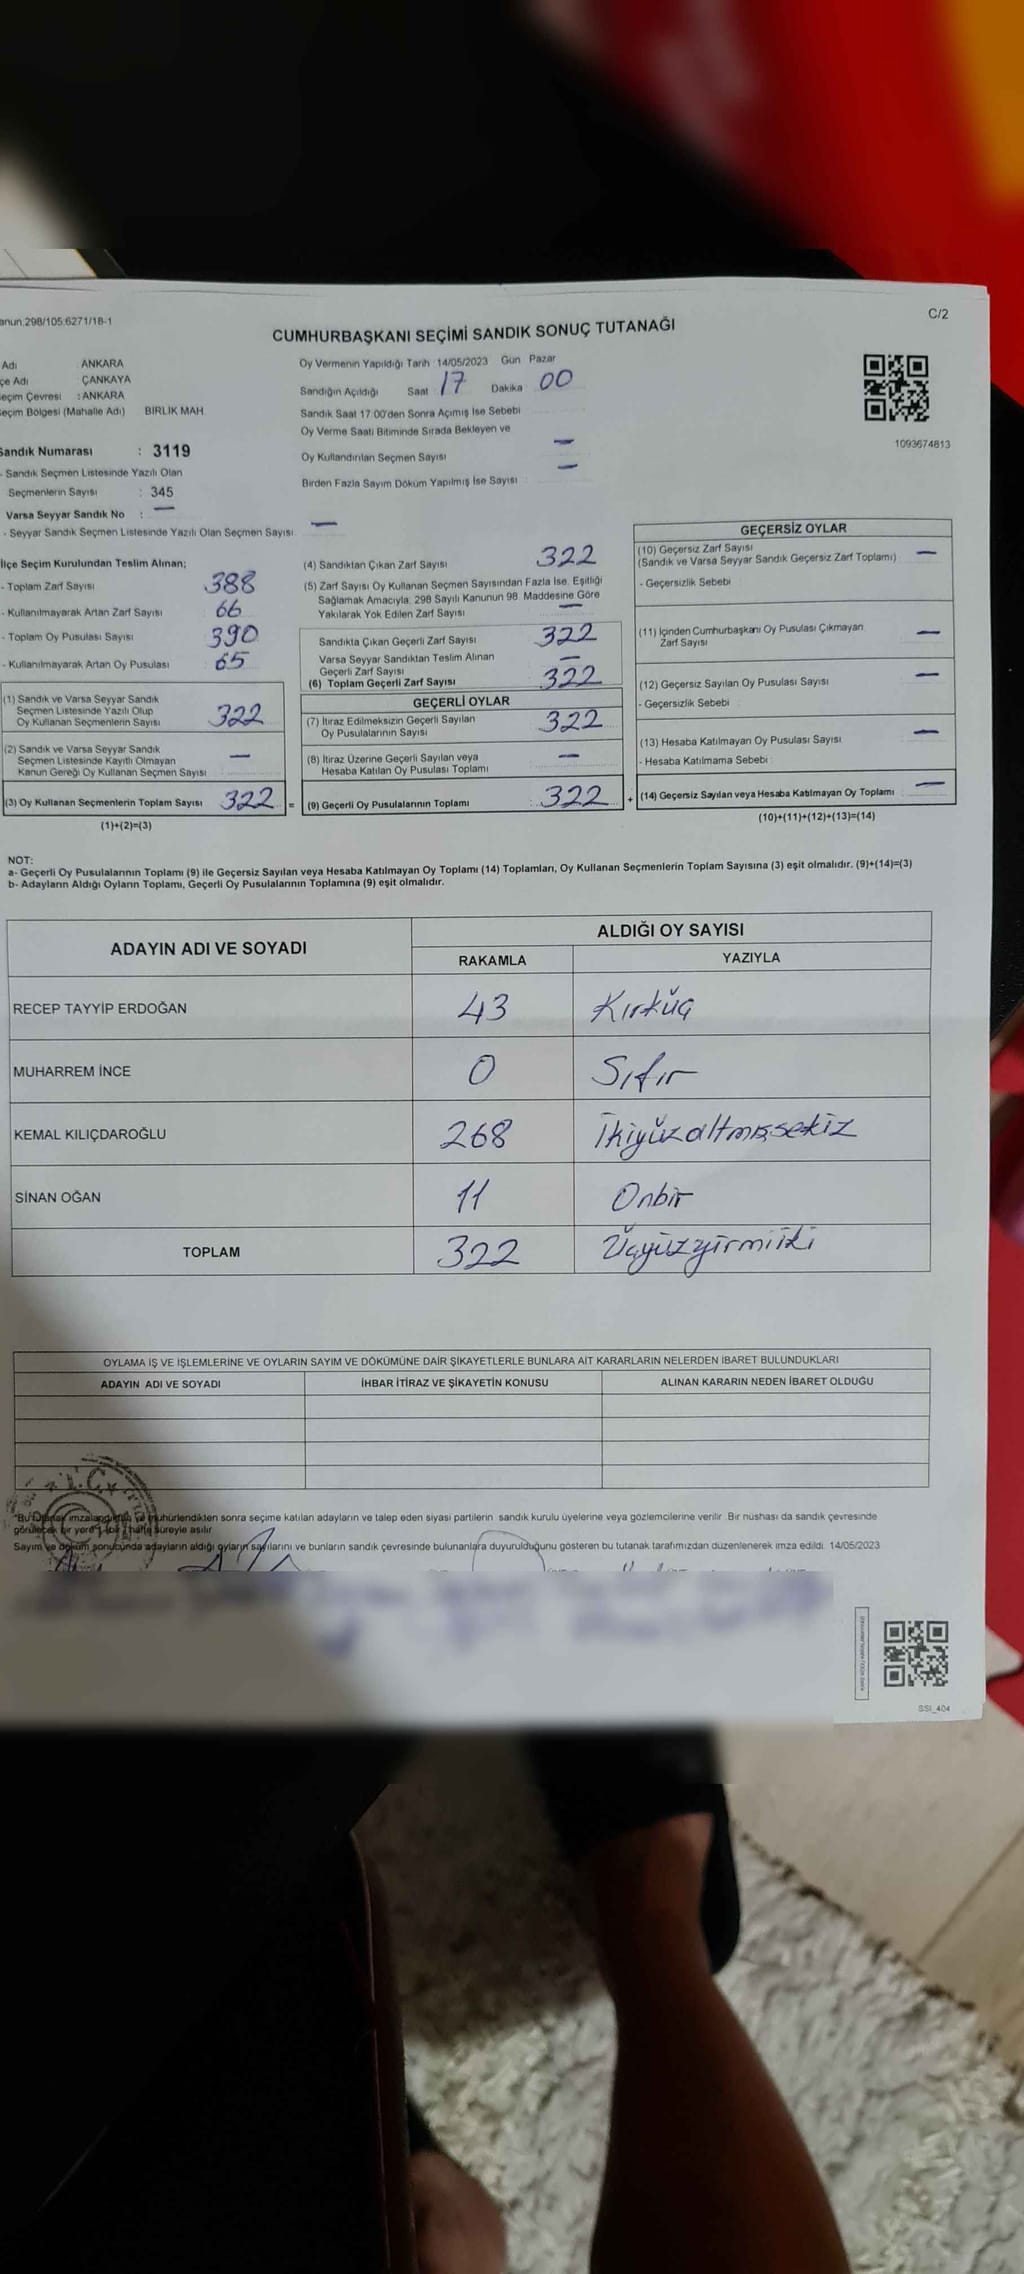 anun:298/105:6271/18-1
C/2
CUMHURBAŞKANI SEÇİMİ SANDIK SONUÇ TUTANAĞI
Adı ANKARA
çe Adı ÇANKAYA
eçim Çevresi : ANKARA
eçim Bölgesi (Mahalle Adı) BİRLİK MAH.
Oy Vermenin Yapıldığı Tarih :14/05/2023 Gün Pazar
Sandığın Açıldığı Saat 17 Dakika 00
Sandık Saat 17:00'den Sonra Açımış İse Sebebi
Oy Verme Saati Bitiminde Sırada Bekleyen ve
Oy Kullandırılan Seçmen Sayısı —
Birden Fazla Sayım Döküm Yapılmış İse Sayısı : —
1093674813
Sandık Numarası : 3119
- Sandık Seçmen Listesinde Yazılı Olan
Seçmenlerin Sayısı : 345
Varsa Seyyar Sandık No : —
- Seyyar Sandık Seçmen Listesinde Yazılı Olan Seçmen Sayısı : —
İlçe Seçim Kurulundan Teslim Alınan;
- Toplam Zarf Sayısı : 388
- Kullanılmayarak Artan Zarf Sayısı : 66
- Toplam Oy Pusulası Sayısı : 390
- Kullanılmayarak Artan Oy Pusulası : 65
(1) Sandık ve Varsa Seyyar Sandık
Seçmen Listesinde Yazılı Olup
Oy Kullanan Seçmenlerin Sayısı : 322
(2) Sandık ve Varsa Seyyar Sandık
Seçmen Listesinde Kayıtlı Olmayan
Kanun Gereği Oy Kullanan Seçmen Sayısı : —
(3) Oy Kullanan Seçmenlerin Toplam Sayısı : 322 =
(1)+(2)=(3)
(4) Sandıktan Çıkan Zarf Sayısı : 322
(5) Zarf Sayısı Oy Kullanan Seçmen Sayısından Fazla İse, Eşitliği
Sağlamak Amacıyla, 298 Sayılı Kanunun 98. Maddesine Göre
Yakılarak Yok Edilen Zarf Sayısı —
Sandıkta Çıkan Geçerli Zarf Sayısı : 322
Varsa Seyyar Sandıktan Teslim Alınan
Geçerli Zarf Sayısı —
(6) Toplam Geçerli Zarf Sayısı : 322
GEÇERLİ OYLAR
(7) İtiraz Edilmeksizin Geçerli Sayılan
Oy Pusulalarının Sayısı : 322
(8) İtiraz Üzerine Geçerli Sayılan veya
Hesaba Katılan Oy Pusulası Toplamı : —
(9) Geçerli Oy Pusulalarının Toplamı : 322 +
GEÇERSİZ OYLAR
(10) Geçersiz Zarf Sayısı
(Sandık ve Varsa Seyyar Sandık Geçersiz Zarf Toplamı) : —
- Geçersizlik Sebebi
(11) İçinden Cumhurbaşkanı Oy Pusulası Çıkmayan
Zarf Sayısı : —
(12) Geçersiz Sayılan Oy Pusulası Sayısı : —
- Geçersizlik Sebebi
(13) Hesaba Katılmayan Oy Pusulası Sayısı : —
- Hesaba Katılmama Sebebi
(14) Geçersiz Sayılan veya Hesaba Katılmayan Oy Toplamı : —
(10)+(11)+(12)+(13)=(14)
NOT:
a- Geçerli Oy Pusulalarının Toplamı (9) ile Geçersiz Sayılan veya Hesaba Katılmayan Oy Toplamı (14) Toplamları, Oy Kullanan Seçmenlerin Toplam Sayısına (3) eşit olmalıdır. (9)+(14)=(3)
b- Adayların Aldığı Oyların Toplamı, Geçerli Oy Pusulalarının Toplamına (9) eşit olmalıdır.
ADAYIN ADI VE SOYADI ALDIĞI OY SAYISI
RAKAMLA YAZIYLA
RECEP TAYYİP ERDOĞAN 43 Kırküç
MUHARREM İNCE 0 Sıfır
KEMAL KILIÇDAROĞLU 268 İkiyüzaltmışsekiz
SİNAN OĞAN 11 Onbir
TOPLAM 322 Üçyüzyirmiiki
OYLAMA İŞ VE İŞLEMLERİNE VE OYLARIN SAYIM VE DÖKÜMÜNE DAİR ŞİKAYETLERLE BUNLARA AİT KARARLARIN NELERDEN İBARET BULUNDUKLARI
ADAYIN ADI VE SOYADI İHBAR İTİRAZ VE ŞİKAYETİN KONUSU ALINAN KARARIN NEDEN İBARET OLDUĞU
T.C.
"Bu tutanak imzalandıktan ve mühürlendikten sonra seçime katılan adayların ve talep eden siyasi partilerin sandık kurulu üyelerine veya gözlemcilerine verilir. Bir nüshası da sandık çevresinde
görülecek bir yere 1 (bir) hafta süreyle asılır.
Sayım ve döküm sonucunda adayların aldığı oyların sayılarını ve bunların sandık çevresinde bulunanlara duyurulduğunu gösteren bu tutanak tarafımızdan düzenlenerek imza edildi. 14/05/2023
SSI_404